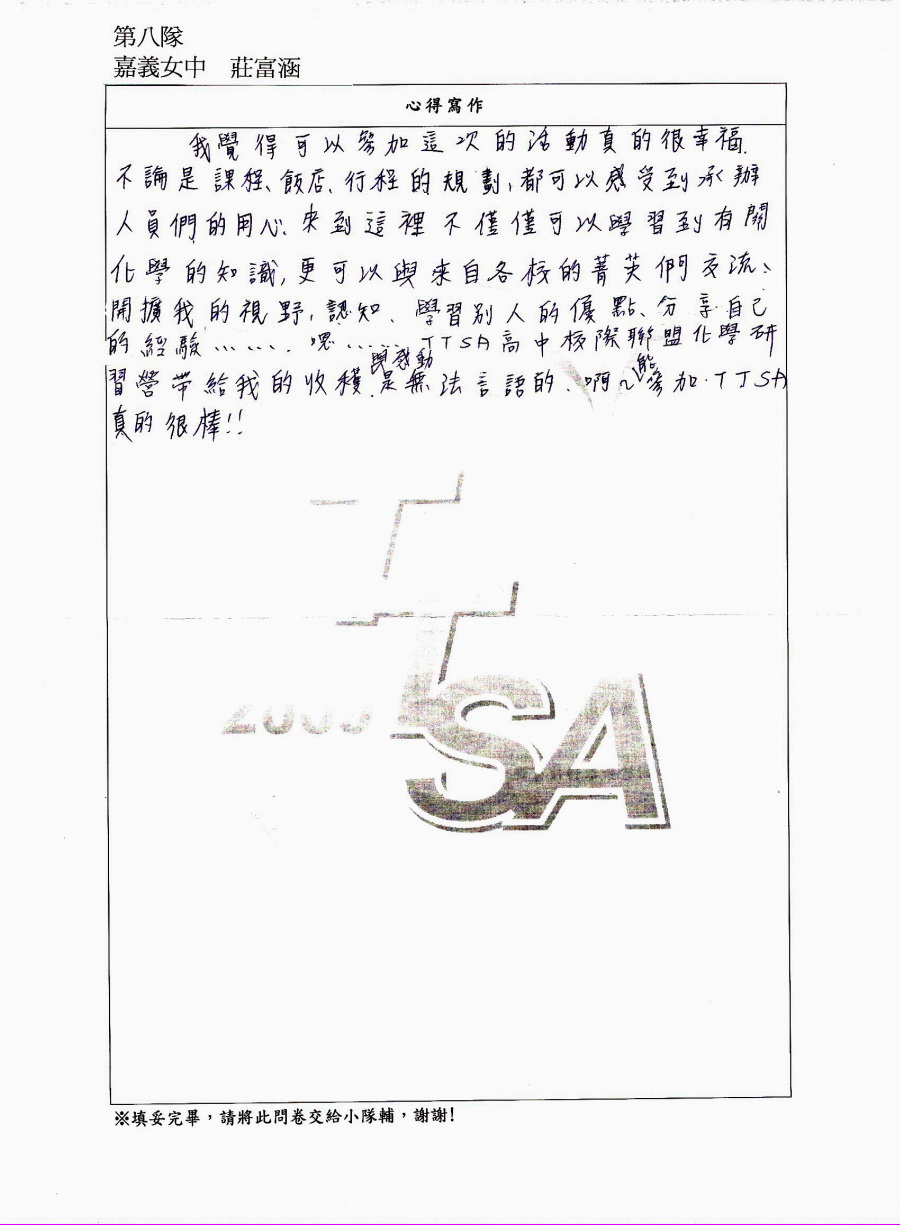 第八隊
嘉義女中 莊富涵
心得寫作
我覺得可以參加這次的活動真的很幸福.
不論是課程、飯店、行程的規劃,都可以感受到承辦
人員們的用心、來到這裡不僅僅可以學習到有關
化學的知識,更可以與來自各校的菁英們交流、
開擴我的視野,認知、學習別人的優點、分享自己
的經驗……. 嗯…… TTSA高中校際聯盟化學研
習營帶給我的收穫與感動是無法言語的、啊~能參加.TTSA
真的很棒!!
T
TSA
※填妥完畢,請將此問卷交給小隊輔,謝謝!